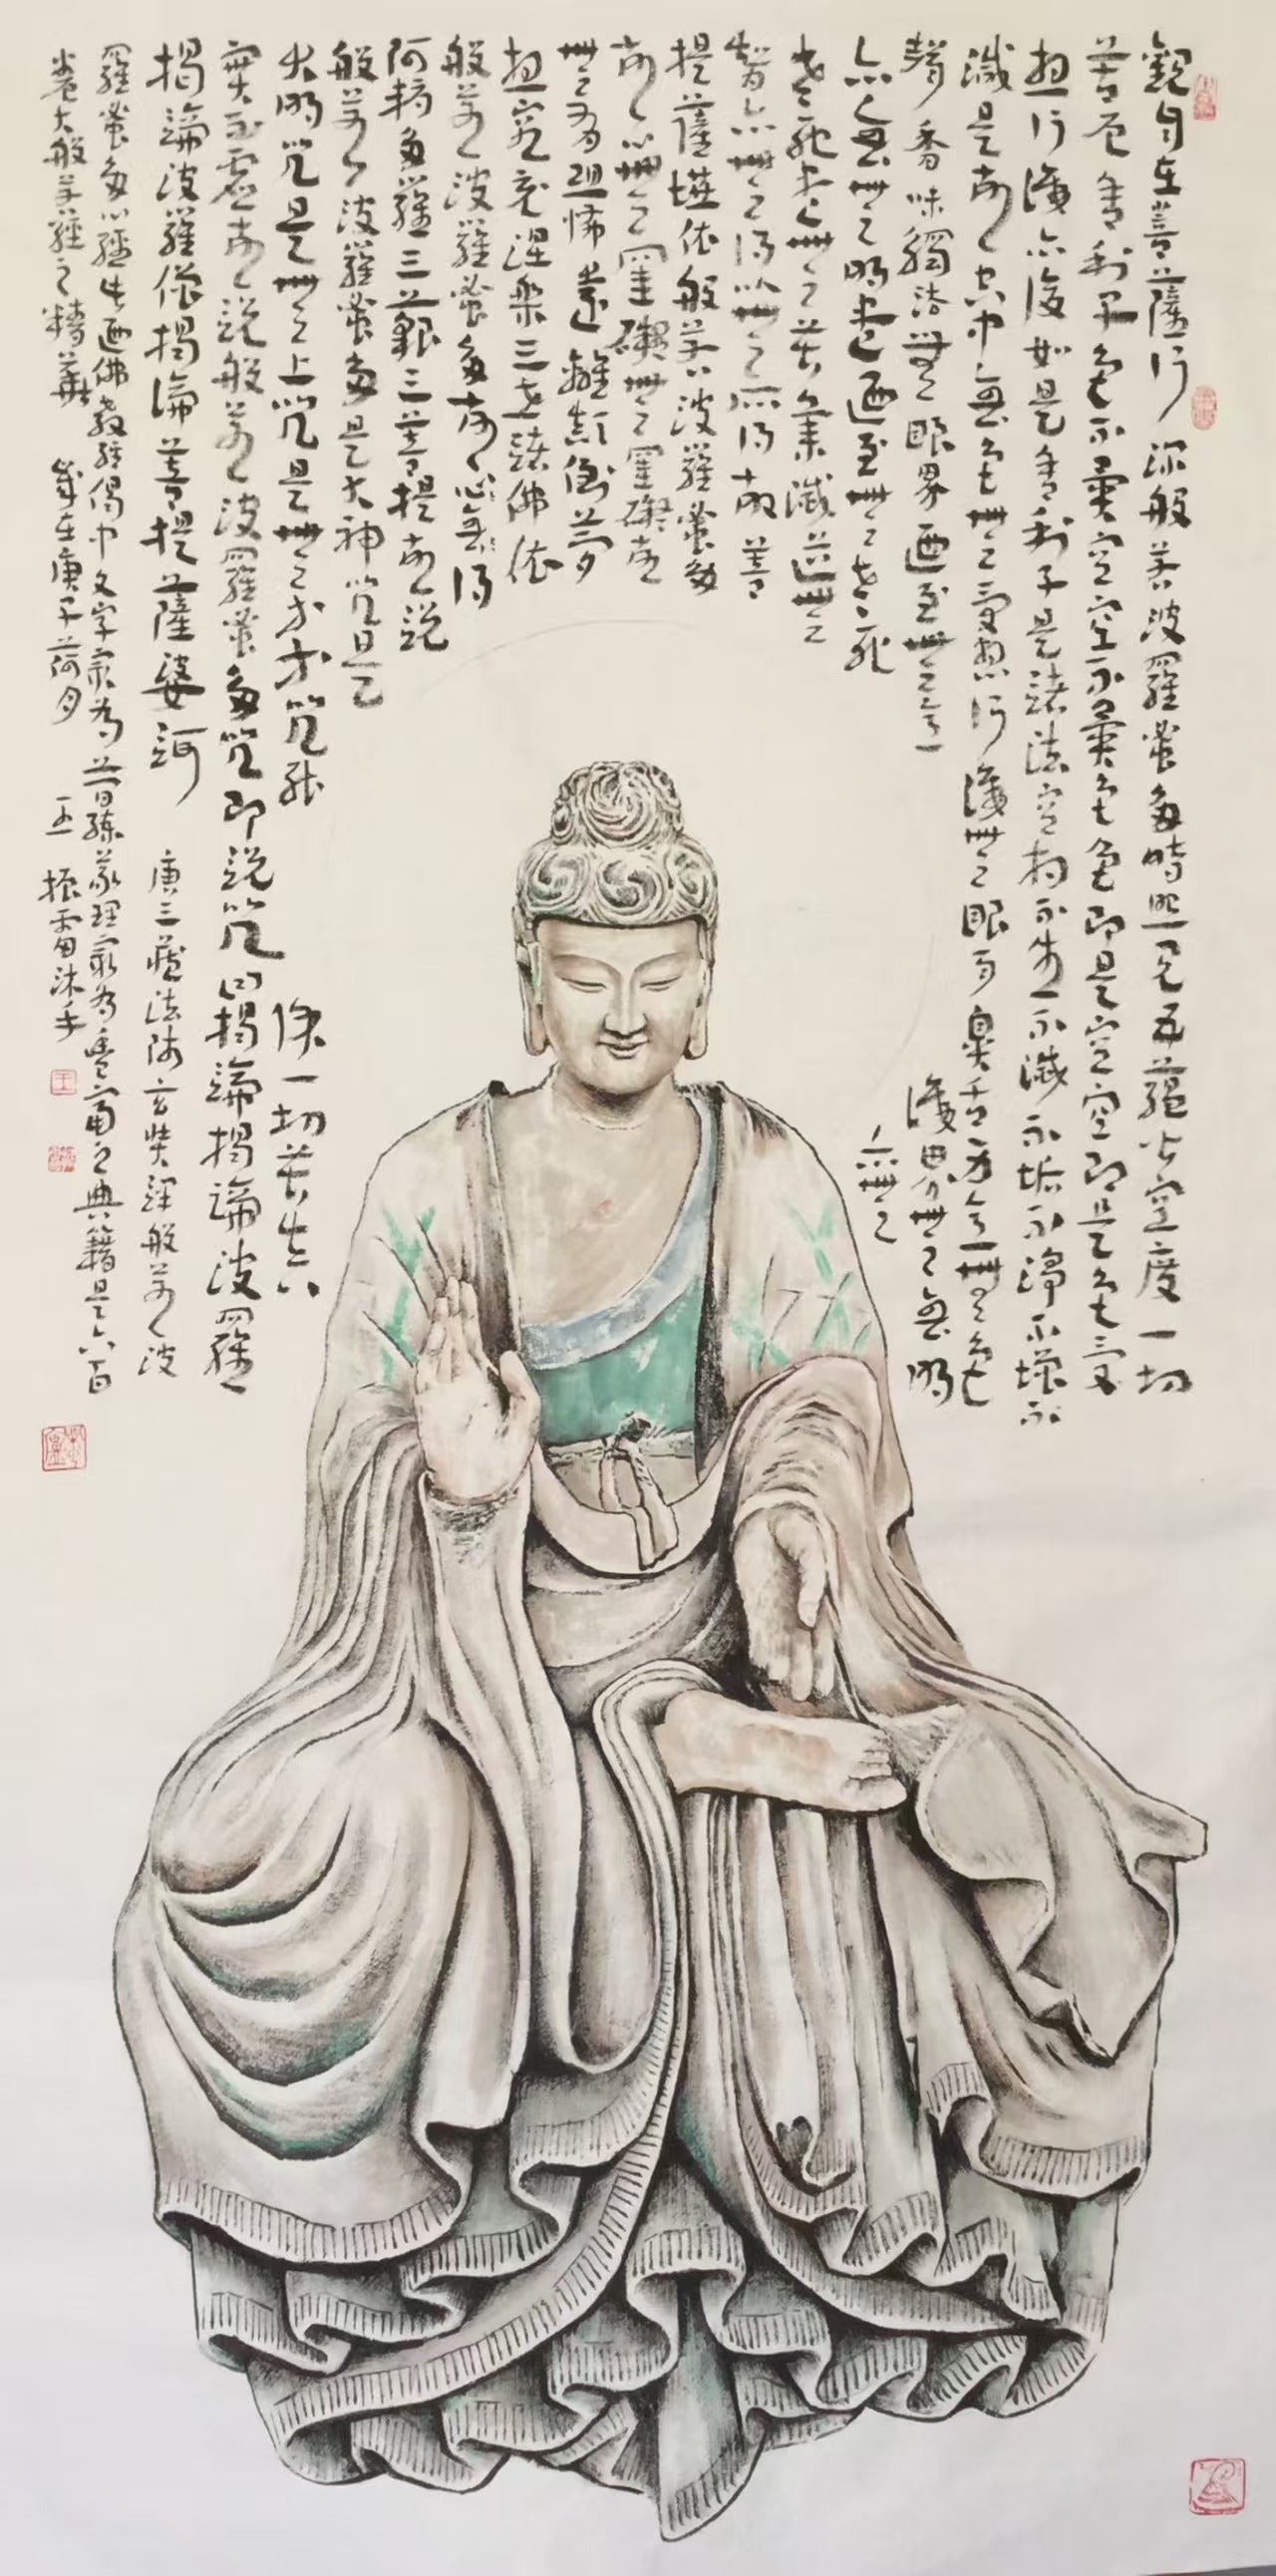 觀自在菩薩行深般若波羅蜜多時照見五蘊皆空度一切
苦厄舍利子色不異空空不異色色即是空空即是色受
想行識亦復如是舍利子是諸法空相不生不滅不垢不淨不增不
減是故空中無色無受想行識無眼耳鼻舌身意無色
聲香味觸法無眼界乃至無意識界無無明
亦無無明盡乃至無老死亦無
老死盡無苦集滅道無
智亦無得以無所得故菩
提薩埵依般若波羅蜜多
故心無罣礙無罣礙故
無有恐怖遠離顛倒夢
想究竟涅槃三世諸佛依
般若波羅蜜多故心無得
阿耨多羅三藐三菩提故說
般若波羅蜜多是大神咒是
大明咒是無上咒是無等等咒能除一切苦真
實不虛故說般若波羅蜜多咒即說咒曰揭諦揭諦波羅
揭諦波羅僧揭諦菩提薩婆訶 唐三藏法師玄奘譯般若波
羅蜜多心經乃佛教經偈中文字最為簡練義理最為豐富之典籍是六百
卷大般若經之精華 歲在庚子荷月 王振雷沐手